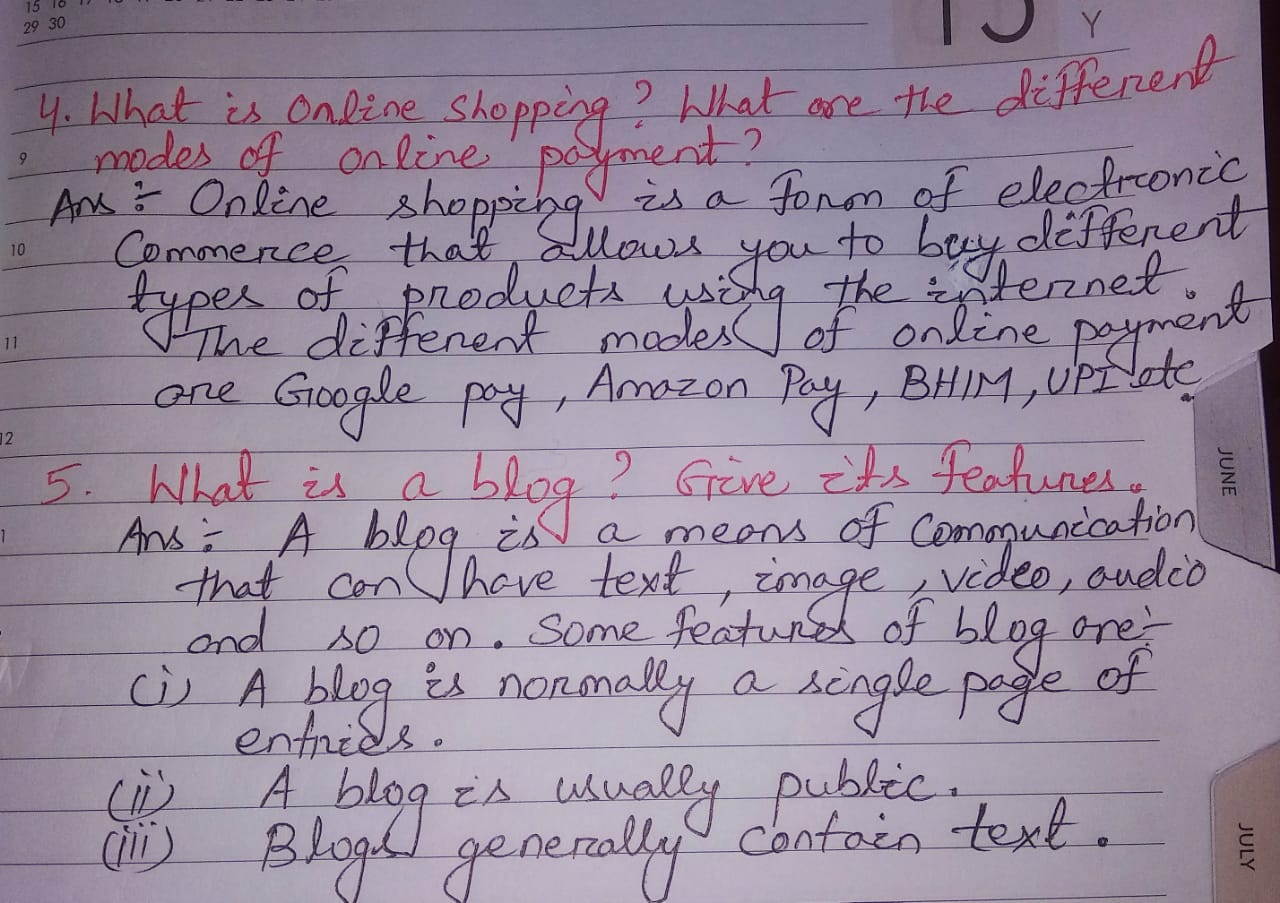 29 30
Y
4. What is Online Shopping? What are the different
9
modes of online payment?
Ans :- Online shopping is a form of electronic
10
Commerce that allows you to buy different
types of products using the internet.
11
The different modes of online payment
are Google pay, Amazon Pay, BHIM, UPI etc.
12
5. What is a blog? Give its features.
JUNE
1
Ans :- A blog is a means of Communication
that can have text, image, video, audio
and so on. Some features of blog are:-
(i) A blog is normally a single page of
entries.
(ii) A blog is usually public.
(iii) Blogs generally contain text.
JULY